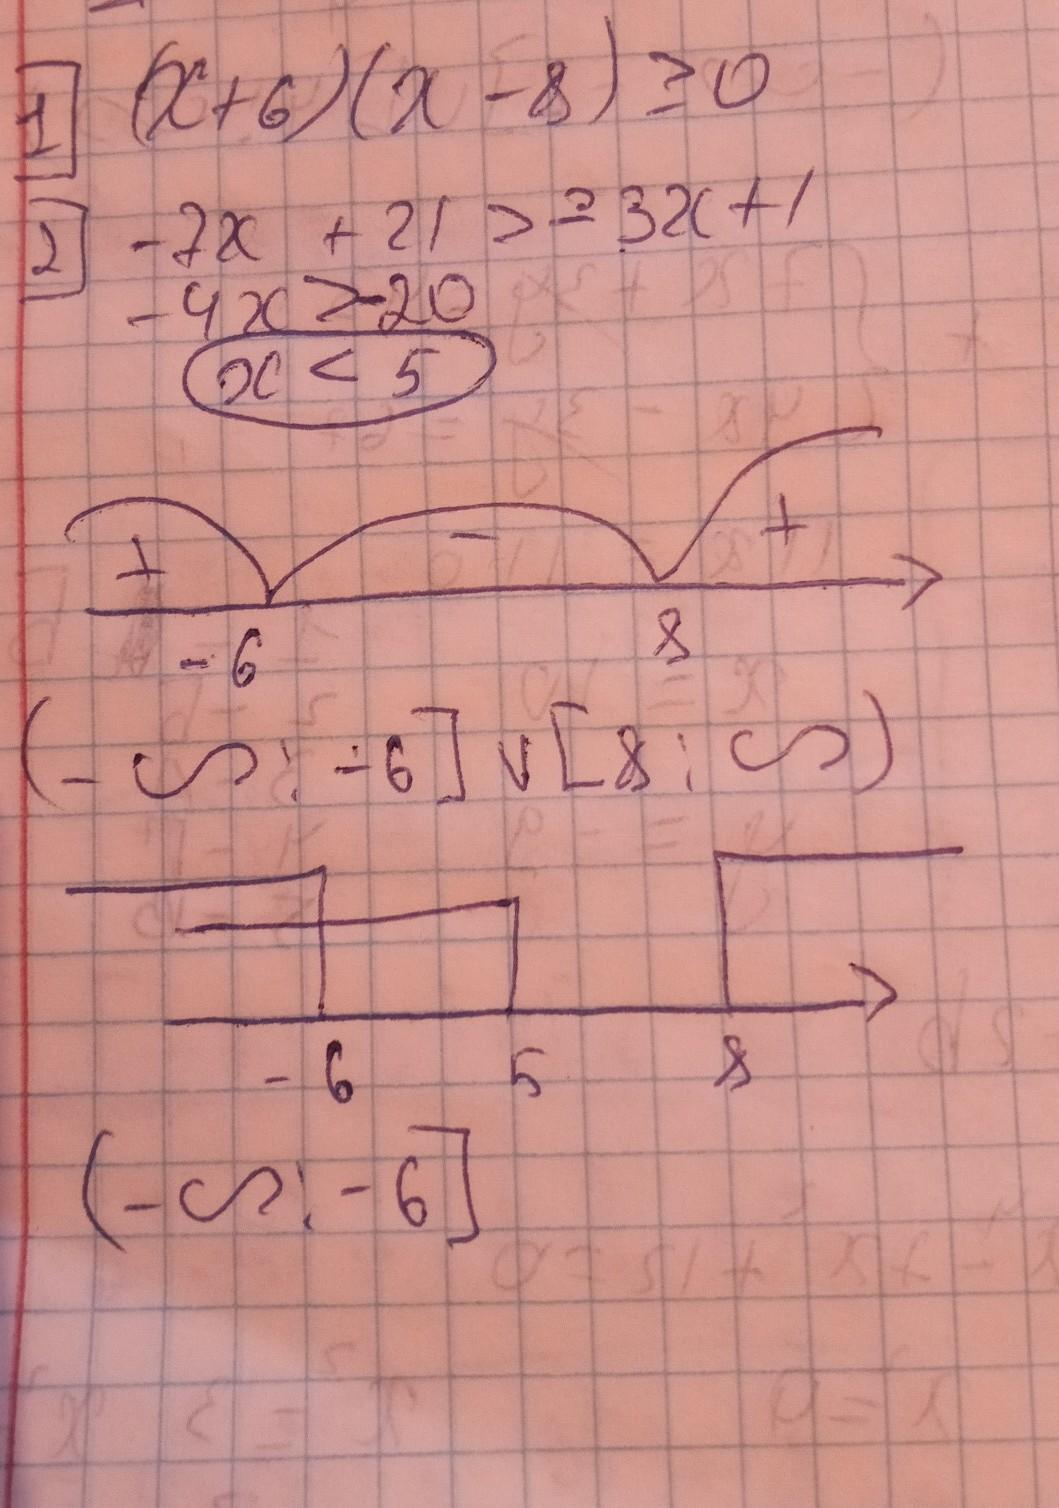 1 (x+6)(x-8)≥0
2 -7x + 21 > -3x+1
-4x > -20
x < 5
+ - +
-6 8
(-∞; -6] ∨ [8; ∞)
-6 5 8
(-∞; -6]